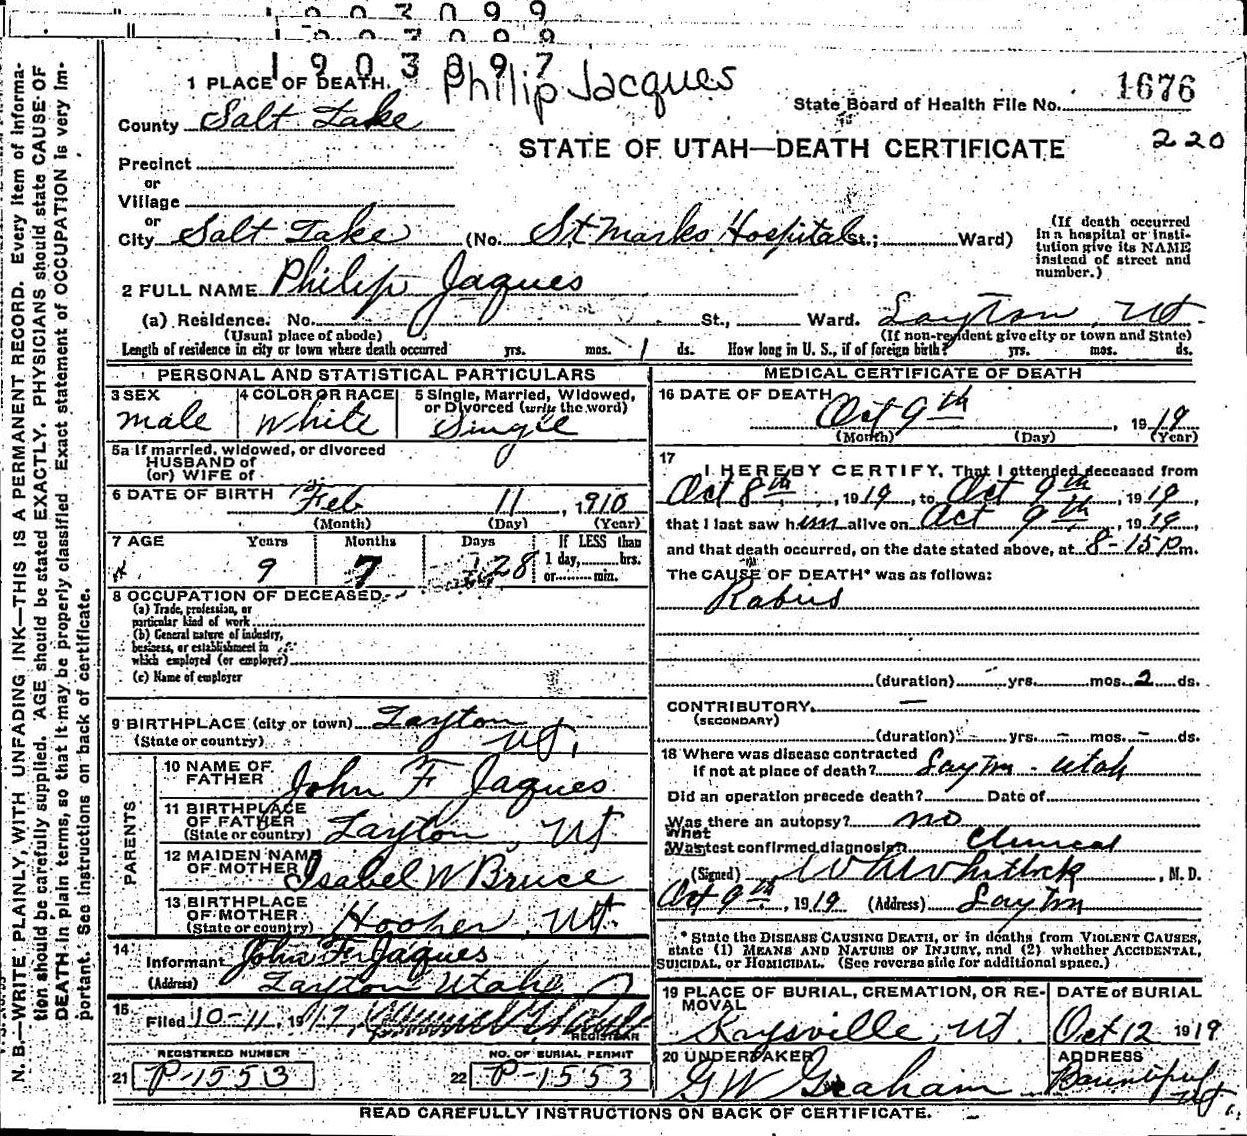 1903099
1903099
1903097
Philip Jacques
1 PLACE OF DEATH.
State Board of Health File No. 1676
County Salt Lake
STATE OF UTAH—DEATH CERTIFICATE
220
Precinct
or
Village
or
City Salt Lake (No. St Marks Hospital St.; Ward)
(If death occurred
in a hospital or insti-
tution give its NAME
instead of street and
number.)
2 FULL NAME Philip Jaques
(a) Residence. No. St., Ward. Layton, Ut.
(Usual place of abode) (If non-resident give city or town and State)
Length of residence in city or town where death occurred yrs. mos. 1 ds. How long in U. S., if of foreign birth? yrs. mos. ds.
PERSONAL AND STATISTICAL PARTICULARS
3 SEX
male
4 COLOR OR RACE
White
5 Single, Married, Widowed,
or Divorced (write the word)
Single
5a If married, widowed, or divorced
HUSBAND of
(or) WIFE of
6 DATE OF BIRTH Feb 11, 1910
(Month) (Day) (Year)
7 AGE Years Months Days If LESS than
1 day, hrs.
or min.
9 7 28
8 OCCUPATION OF DECEASED
(a) Trade, profession, or
particular kind of work
(b) General nature of industry,
business, or establishment in
which employed (or employer)
(c) Name of employer
9 BIRTHPLACE (city or town) Layton
(State or country) Ut.
PARENTS
10 NAME OF
FATHER John F Jaques
11 BIRTHPLACE
OF FATHER
(State or country) Layton, Ut
12 MAIDEN NAME
OF MOTHER Isabel W Bruce
13 BIRTHPLACE
OF MOTHER
(State or country) Hooper, Ut.
14
Informant John F. Jaques
(Address) Layton Utah
15
Filed 10-11, 1917
REGISTRAR
REGISTERED NUMBER
21 P-1553
NO. OF BURIAL PERMIT
22 P-1553
MEDICAL CERTIFICATE OF DEATH
16 DATE OF DEATH
Oct 9th, 1919
(Month) (Day) (Year)
17
I HEREBY CERTIFY, That I attended deceased from
Oct 8th, 1919, to Oct 9th, 1919,
that I last saw him alive on Oct 9th, 1919,
and that death occurred, on the date stated above, at 8-15 p m.
The CAUSE OF DEATH* was as follows:
Rabies
(duration) - yrs. mos. 2 ds.
CONTRIBUTORY. —
(SECONDARY)
(duration) - yrs. - mos. - ds.
18 Where was disease contracted
if not at place of death? Layton - Utah
Did an operation precede death? Date of
Was there an autopsy? no
What
Was test confirmed diagnosis Clinical
(Signed) W M Whitlock, M. D.
Oct 9th, 1919 (Address) Layton
* State the DISEASE CAUSING DEATH, or in deaths from VIOLENT CAUSES,
state (1) MEANS AND NATURE OF INJURY, and (2) whether ACCIDENTAL,
SUICIDAL, or HOMICIDAL. (See reverse side for additional space.)
19 PLACE OF BURIAL, CREMATION, OR RE-
MOVAL
Kaysville, Ut.
DATE OF BURIAL
Oct 12 1919
20 UNDERTAKER
G W Graham
ADDRESS
Bountiful
Ut
READ CAREFULLY INSTRUCTIONS ON BACK OF CERTIFICATE.
N. B.—WRITE PLAINLY, WITH UNFADING INK—THIS IS A PERMANENT RECORD. Every item of informa-
tion should be carefully supplied. AGE should be stated EXACTLY. PHYSICIANS should state CAUSE OF
DEATH in plain terms, so that it may be properly classified. Exact statement of OCCUPATION is very im-
portant. See instructions on back of certificate.